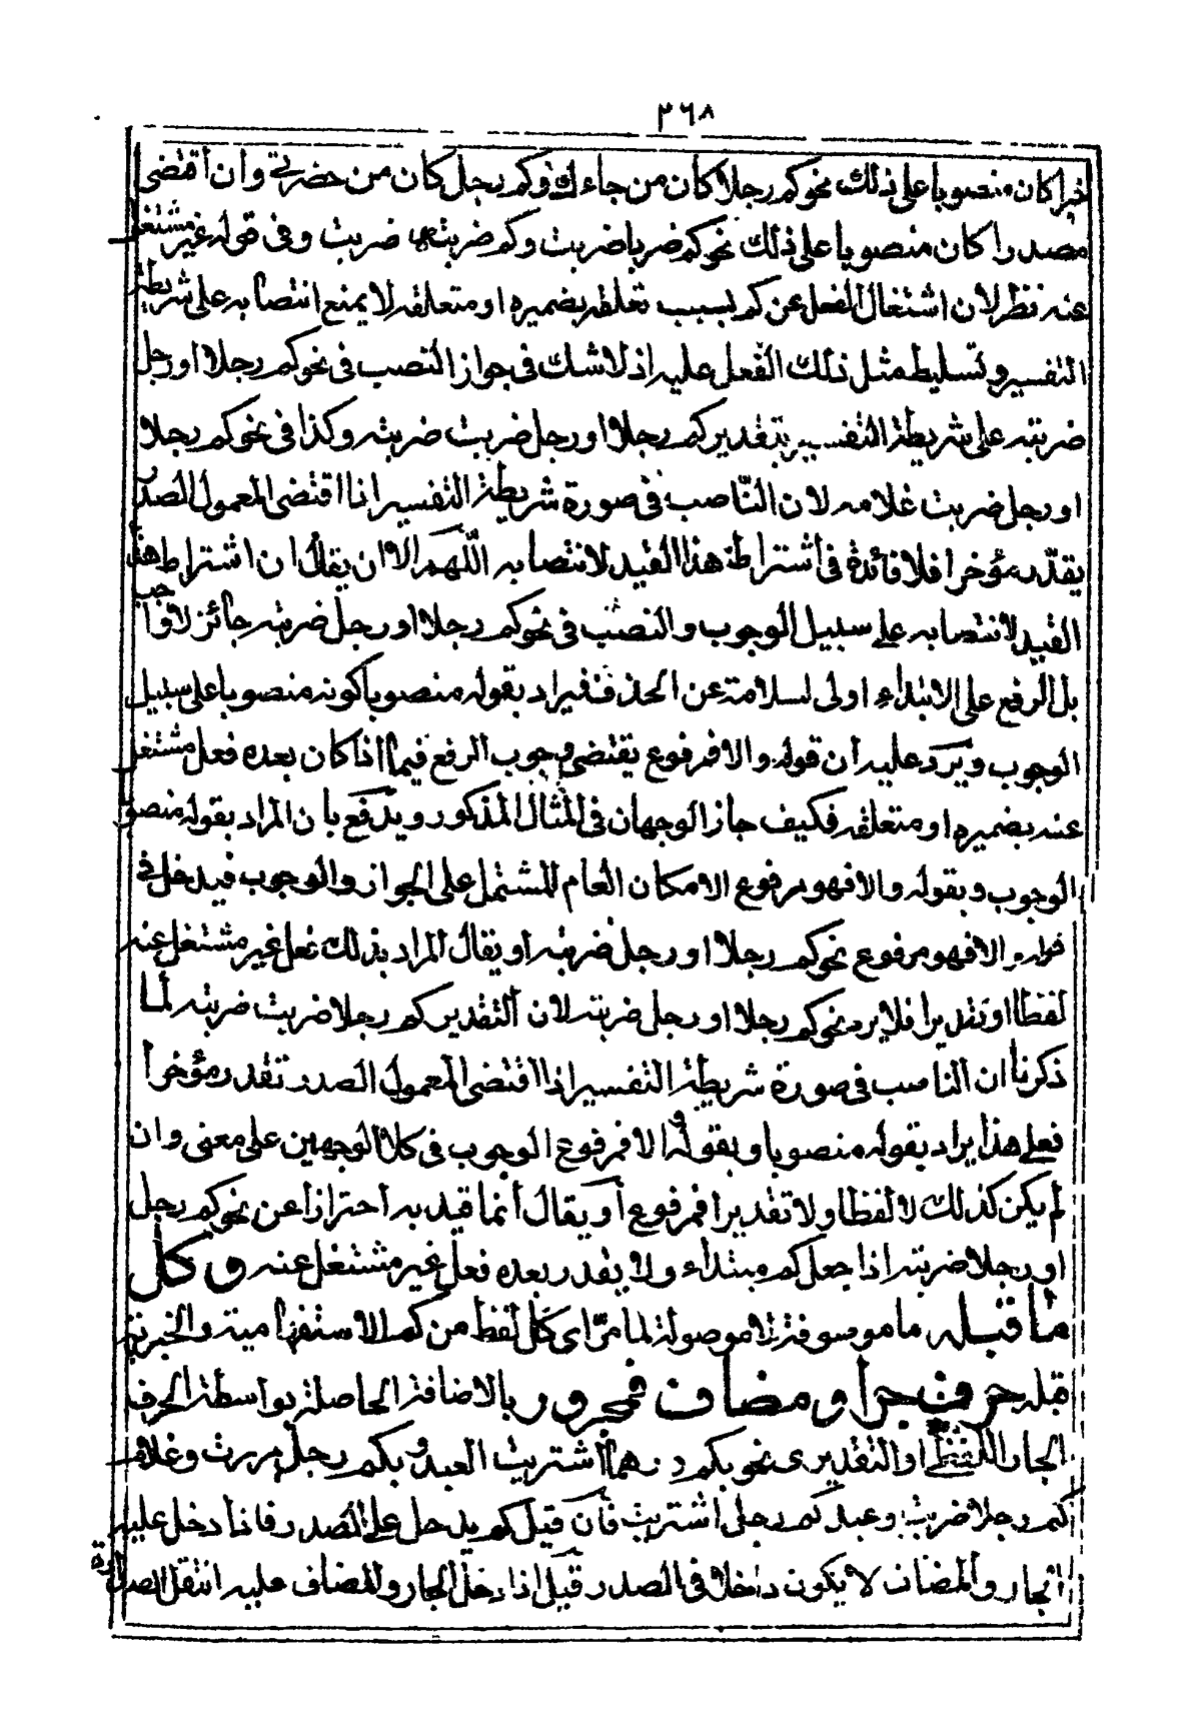 ٣٦٨
خبرا كان منصوبا على ذلك نحو كم رجلا كان من جاءك وكم رجل كان من حضرنى وان اقتضى
مصدرا كان منصوبا على ذلك نحو كم ضربا ضربت وكم ضربة ضربت وفى قوله غير مشتغل
عنه نظر لان اشتغال الفعل عن كم بسبب تعلقه بضميره او متعلقه لا يمنع انتصابه على شريطة
التفسير وتسليط مثل ذلك الفعل عليه اذ لا شك فى جواز النصب فى نحو كم رجلا او رجل
ضربته على شريطة التفسير بتقدير كم رجلا او رجل ضربت ضربته وكذا فى نحو كم رجلا
او رجل ضربت غلامه لان النّاصب فى صورة شريطة التفسير اذا اقتضى المعمول الصدر
يقدّر مؤخرا فلا فائدة فى اشتراط هذا القيد لانتصابه اللّهم الا ان يقال ان اشتراط هذا
القيد لانتصابه على سبيل الوجوب والنصب فى نحو كم رجلا او رجل ضربته جائز لا واجب
بل الرفع على الابتداء اولى لسلامته عن الحذف فيراد بقوله منصوبا كونه منصوبا على سبيل
الوجوب ويرد عليه ان قوله والا فمرفوع يقتضى وجوب الرفع فيما اذا كان بعده فعل مشتغل
عنه بضميره او متعلقه فكيف جاز الوجهان فى المثال المذكور ويدفع بان المراد بقوله منصوبا
الوجوب وبقوله والا فهو مرفوع الامكان العام المشتمل على الجواز والوجوب فيدخل فى
قوله والا فهو مرفوع نحو كم رجلا او رجل ضربته او يقال المراد بذلك فعل غير مشتغل عنه
لفظا او تقديرا فلا يرد نحو كم رجلا او رجل ضربته لان التقدير كم رجلا ضربت ضربته لما
ذكرنا ان الناصب فى صورة شريطة التفسير اذا اقتضى المعمول الصدر تقدر مؤخرا
فعلى هذا يراد بقوله منصوبا وبقوله والا فمرفوع الوجوب فى كلا الوجهين على معنى وان
لم يكن كذلك لا لفظا ولا تقديرا فمرفوع او يقال انما قيد به احترازا عن نحو كم رجل
او رجلا ضربته اذا جعل كم مبتداء ولا يقدر بعده فعل غير مشتغل عنه وكل
ما قبله ما موصوفة لا موصولة لما مرّ اى كل لفظ من كم الاستفهامية والخبرية
قبله حرف جر او مضاف فمجرور بالاضافة الحاصلة بواسطة الحرف
الجار اللفظى او التقديرى نحو بكم درهما اشتريت العبد وبكم رجل مررت وغلام
كم رجلا ضربت وعبد كم رجل اشتريت فان قيل كم يدخل على الصدر فاذا دخل عليه
الجار والمضاف لا يكون داخلا فى الصدر قيل اذا دخل الجار والمضاف عليه انتقل الصدارة